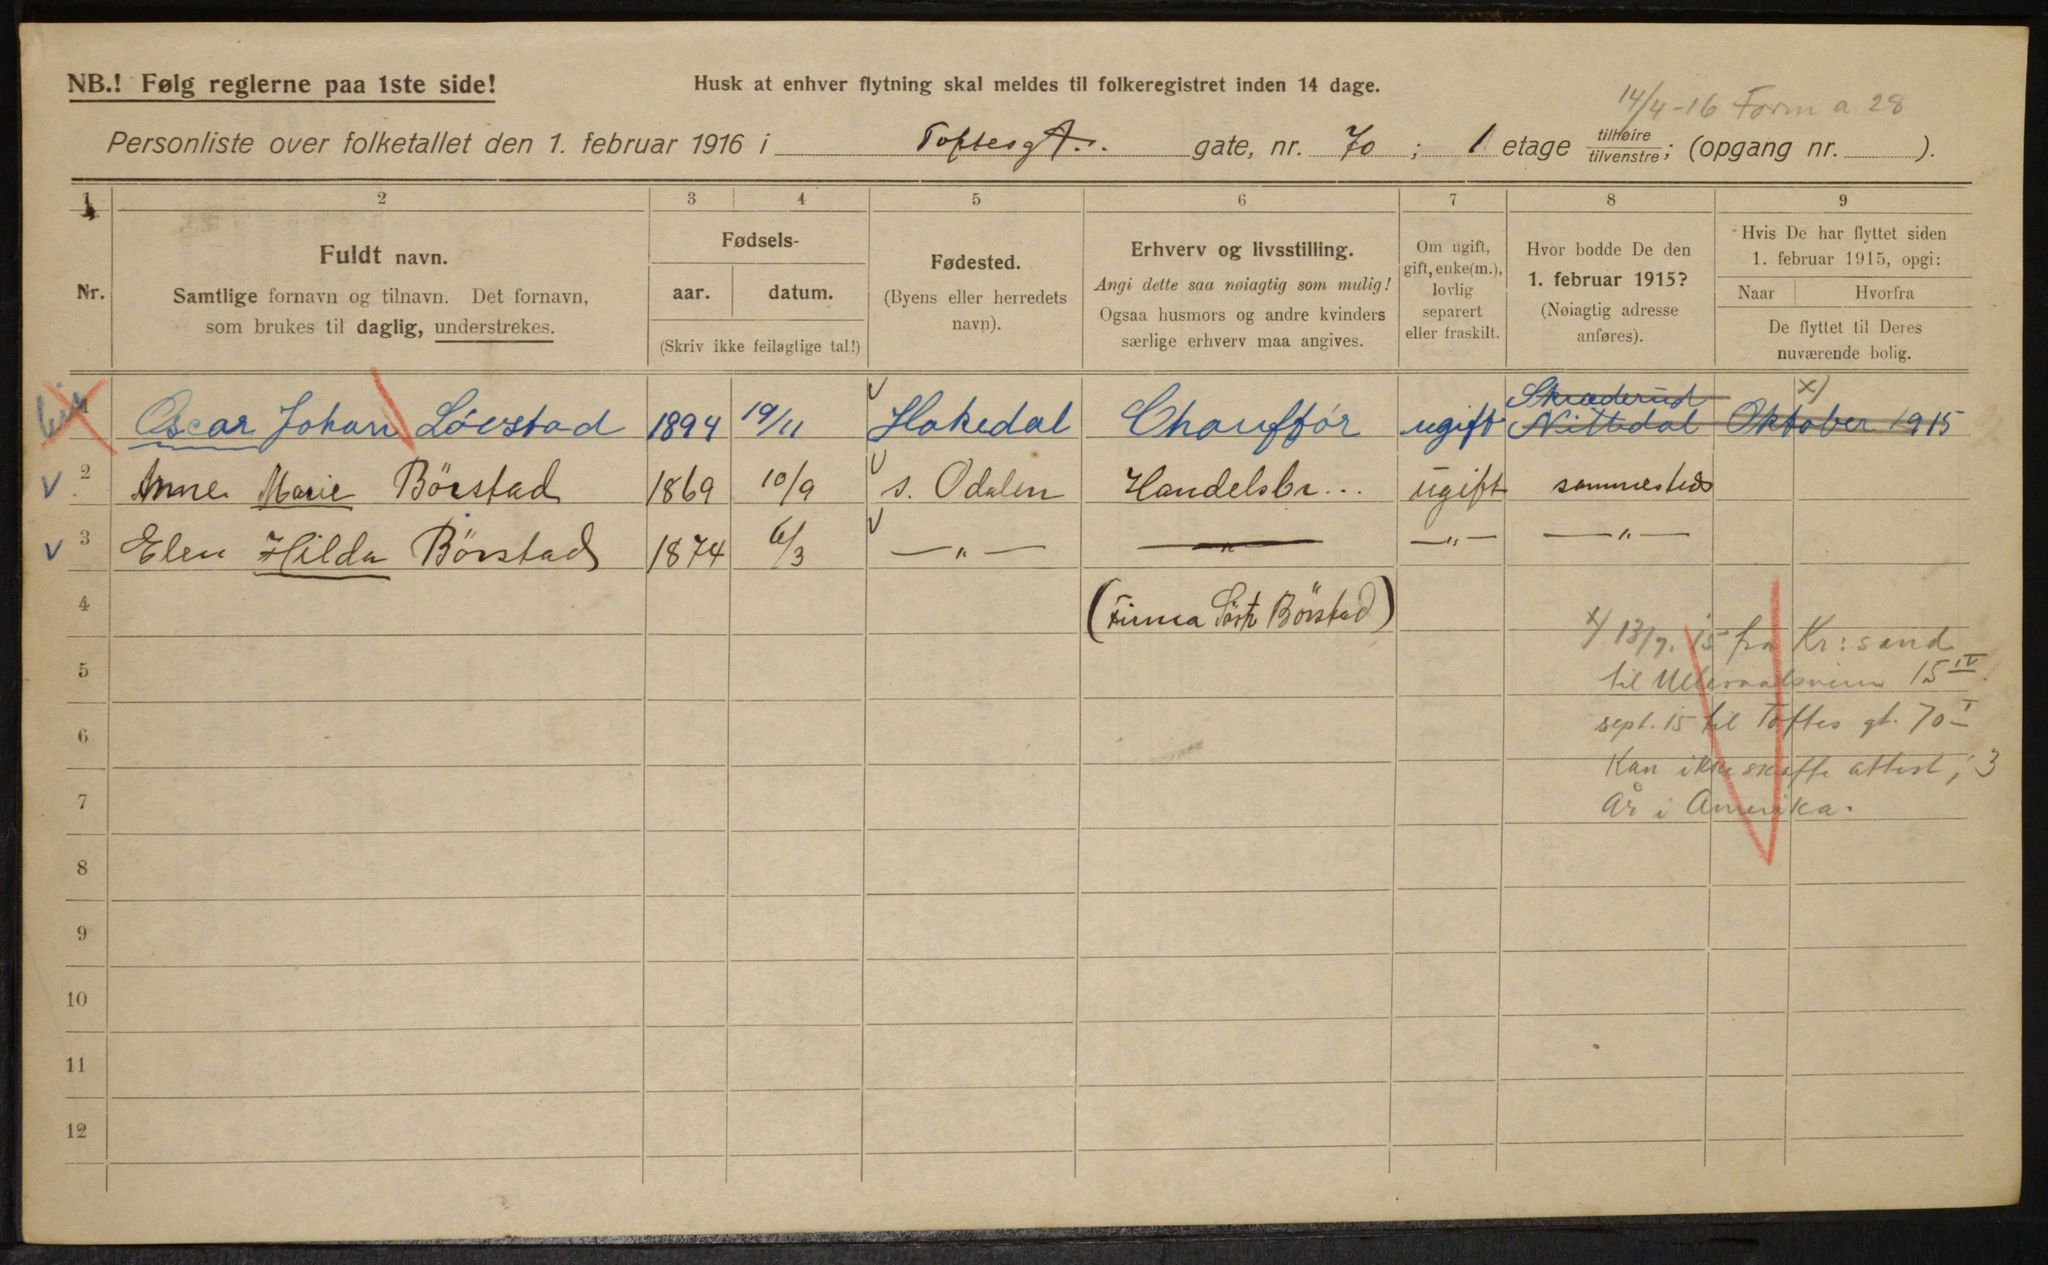 NB.! Følg reglerne paa 1ste side!
Husk at enhver flytning skal meldes til folkeregistret inden 14 dage.
14/4-16 Form a 28
Personliste over folketallet den 1. februar 1916 i Toftesgt. gate, nr. 70; 1 etage tilhøire/tilvenstre; (opgang nr. ).
1 2 3 4 5 6 7 8 9
Nr.
Fuldt navn.
Samtlige fornavn og tilnavn. Det fornavn,
som brukes til daglig, understrekes.
Fødsels-
aar. datum.
(Skriv ikke feilagtige tal!)
Fødested.
(Byens eller herredets
navn).
Erhverv og livsstilling.
Angi dette saa nøiagtig som mulig!
Ogsaa husmors og andre kvinders
særlige erhverv maa angives.
Om ugift,
gift, enke(m.),
lovlig
separert
eller fraskilt.
Hvor bodde De den
1. februar 1915?
(Nøiagtig adresse
anføres).
Hvis De har flyttet siden
1. februar 1915, opgi:
Naar Hvorfra
De flyttet til Deres
nuværende bolig.
Skræderud x)
1 Oscar Johan Lövstad 1894 19/11 Hakedal Chaufför ugift Nittedal Oktober 1915
2 Anne Marie Börstad 1869 10/9 s. Odalen Handelsbr... ugift sammesteds
3 Elen Hilda Börstad 1874 6/3 —„— —„— —„— —„—
4 (Firma Börstad)
x) 13/7. 15 fra Kr:sand
5 til Ullevaalsveien 15 IV.
sept. 15 til Toftes gt. 70 I
6
Kan ikke skaffe attest, 3
7 År i Amerika.
8
9
10
11
12